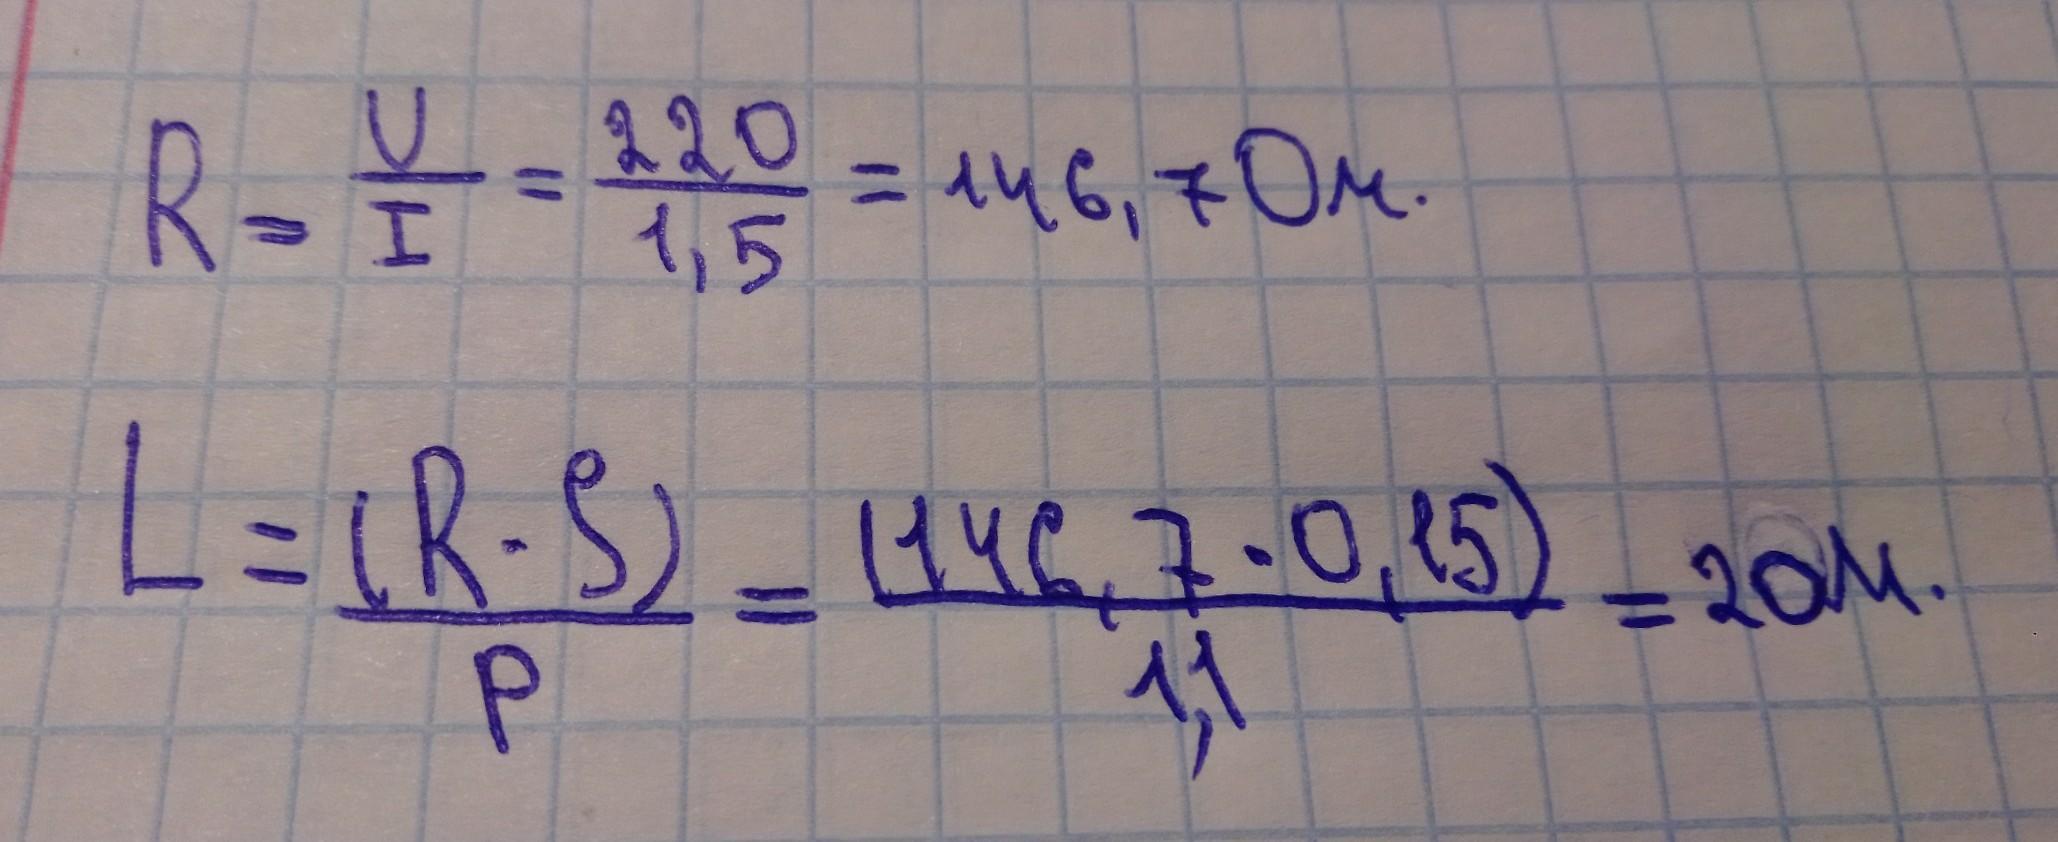 R = U/I = 220/1,5 = 146,7 Ом.
L = (R · S)/P = (146,7 · 0,15)/1,1 = 20м.